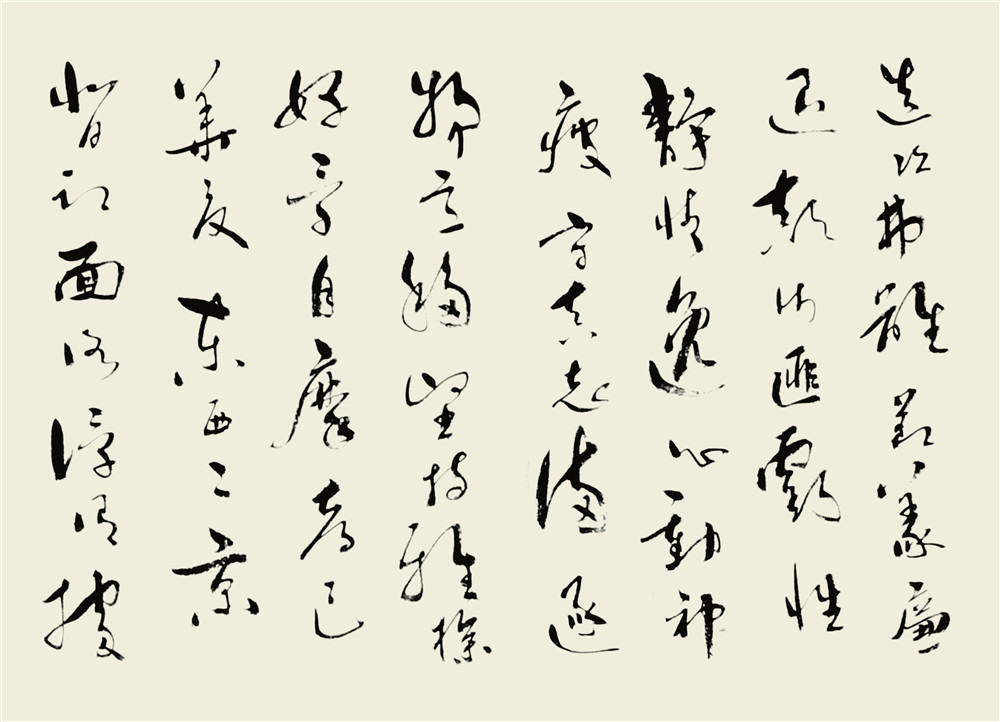 造次弗離節義廉
退顛沛匪虧性
靜情逸心動神
疲守真志滿逐
物意移堅持雅操
好爵自縻都邑
華夏東西二京
背邙面洛浮渭據